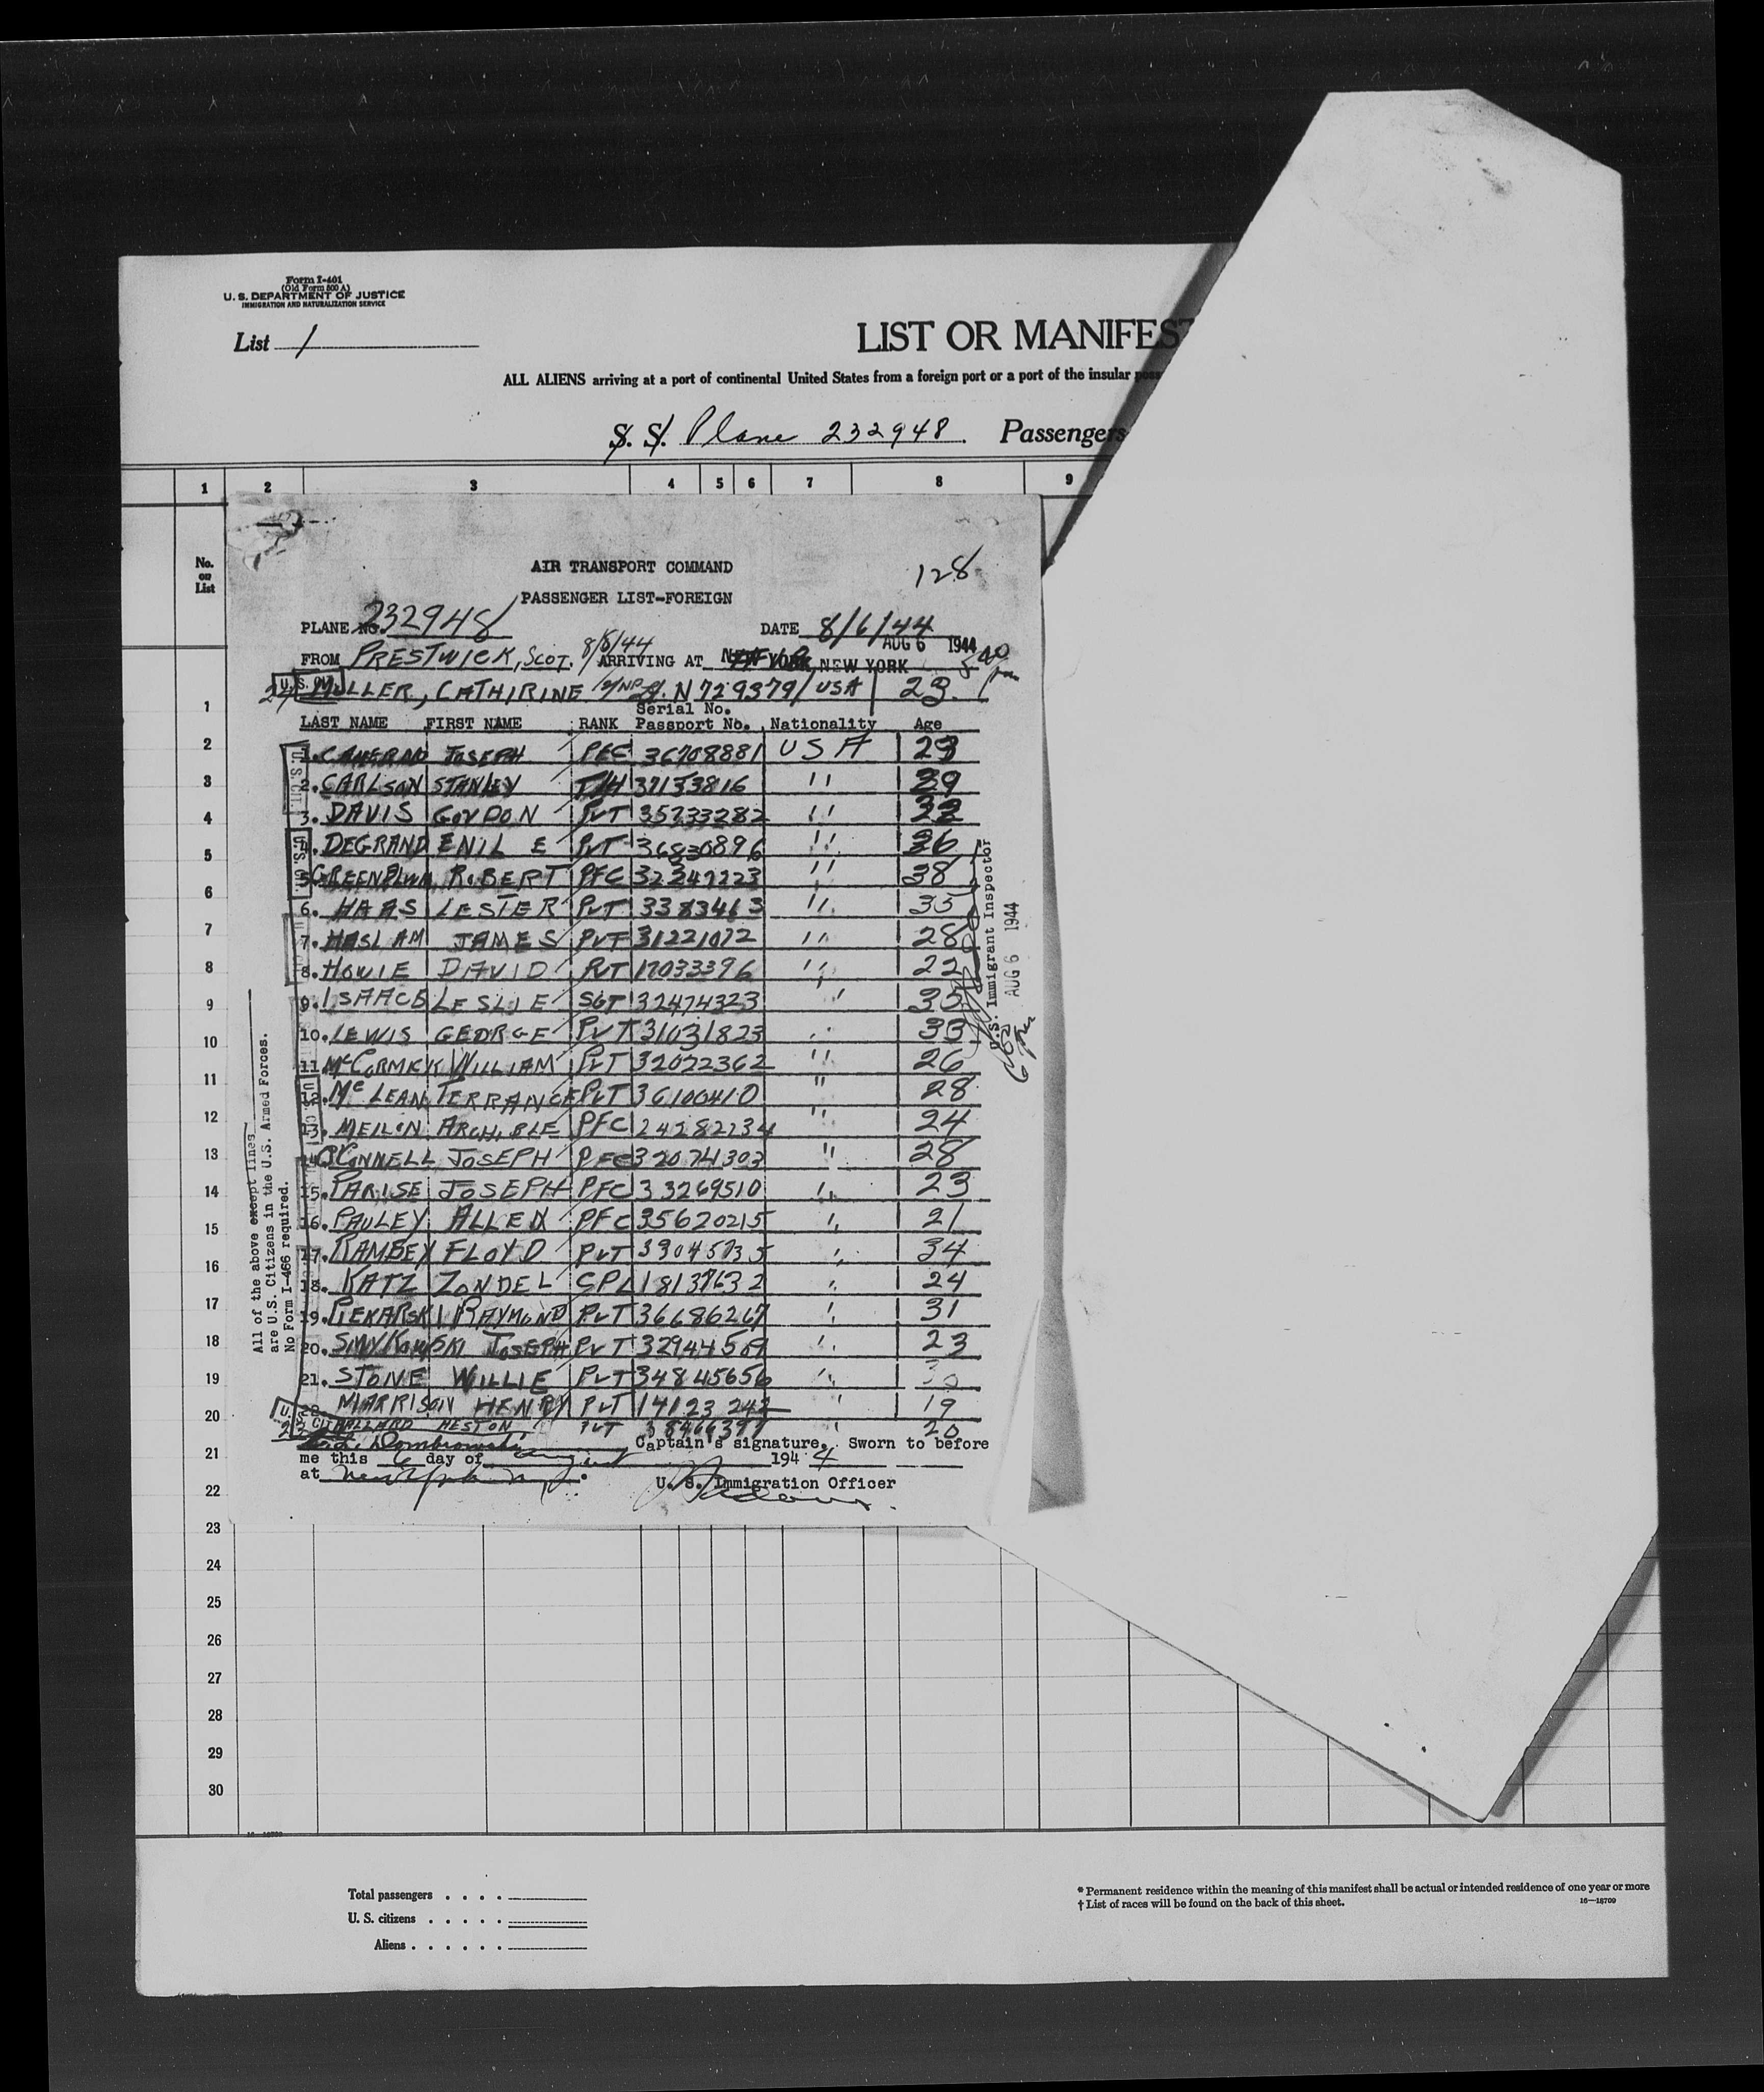 Form I-401
(Old Form 500 A)
U. S. DEPARTMENT OF JUSTICE
IMMIGRATION AND NATURALIZATION SERVICE
List 1
LIST OR MANIFES
ALL ALIENS arriving at a port of continental United States from a foreign port or a port of the insular
S. S. Plane 232948 Passengers
1 2 3 4 5 6 7 8 9
No. on List
AIR TRANSPORT COMMAND
128
PASSENGER LIST-FOREIGN
PLANE NO. 232948 DATE 8/6/44
AUG 6 1944
FROM PRESTWICK, SCOT. 8/8/44 ARRIVING AT NEW YORK, NEW YORK
24 U.S. CIT. MULLER, CATHIRINE N729379 USA 23
Serial No.
LAST NAME FIRST NAME RANK Passport No. Nationality Age
1. JOSEPH PFC 36708881 USA 23
2. CARLSON STANLEY T/4 37153816 " 29
3. DAVIS GOVDON PVT 35233282 "
4. DEGRAND ENIL E PVT 36830896 " 36
5. ROBERT PFC 32247223 " 38
6. HAAS LESTER PVT 3383463 " 35
7. HASLAM JAMES PVT 31221072 " 28
8. HOWIE DAVID PVT 17033396 " 22
9. ISAACS LESLIE SGT 32474323 " 35
10. LEWIS GEORGE PVT 31031823 " 33
11. McCORMICK WILLIAM PVT 32022362 " 26
12. McLEAN TERRANCE PVT 36100410 " 28
13. MELLON ARCHIBLE PFC 24282234 " 24
14. O'CONNELL JOSEPH PFC 32074303 " 28
15. PARISE JOSEPH PFC 33269510 " 23
16. PAULEY ALLEN PFC 35620215 " 21
17. RAMBEY FLOYD PVT 39045735 " 34
18. KATZ ZONDEL CPL 18137632 " 24
19. PIEKARSKI RAYMOND PVT 36686267 " 31
20. JOSEPH PVT 32944509 " 23
21. STONE WILLIE PVT 34845656 "
22. MARRISON HENRY PVT 14123242 " 19
HALLARD HESTON PVT 38466397 " 20
Dombrowski Captain's signature. Sworn to before
me this 6 day of August 1944
at
U. S. Immigration Officer
All of the above except lines
are U.S. Citizens in the U.S. Armed Forces.
No Form I-466 required.
U.S. Immigrant Inspector
AUG 6 1944
1
2
3
4
5
6
7
8
9
10
11
12
13
14
15
16
17
18
19
20
21
22
23
24
25
26
27
28
29
30
Total passengers . . . .
U. S. citizens . . . . .
Aliens . . . . . .
* Permanent residence within the meaning of this manifest shall be actual or intended residence of one year or more
† List of races will be found on the back of this sheet. 16—18709